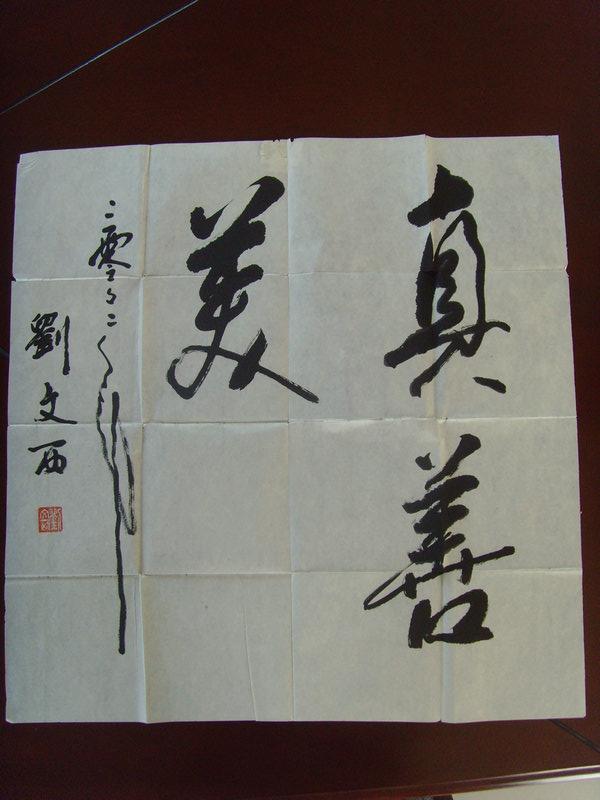 真善
美
二零〇二年
劉文西